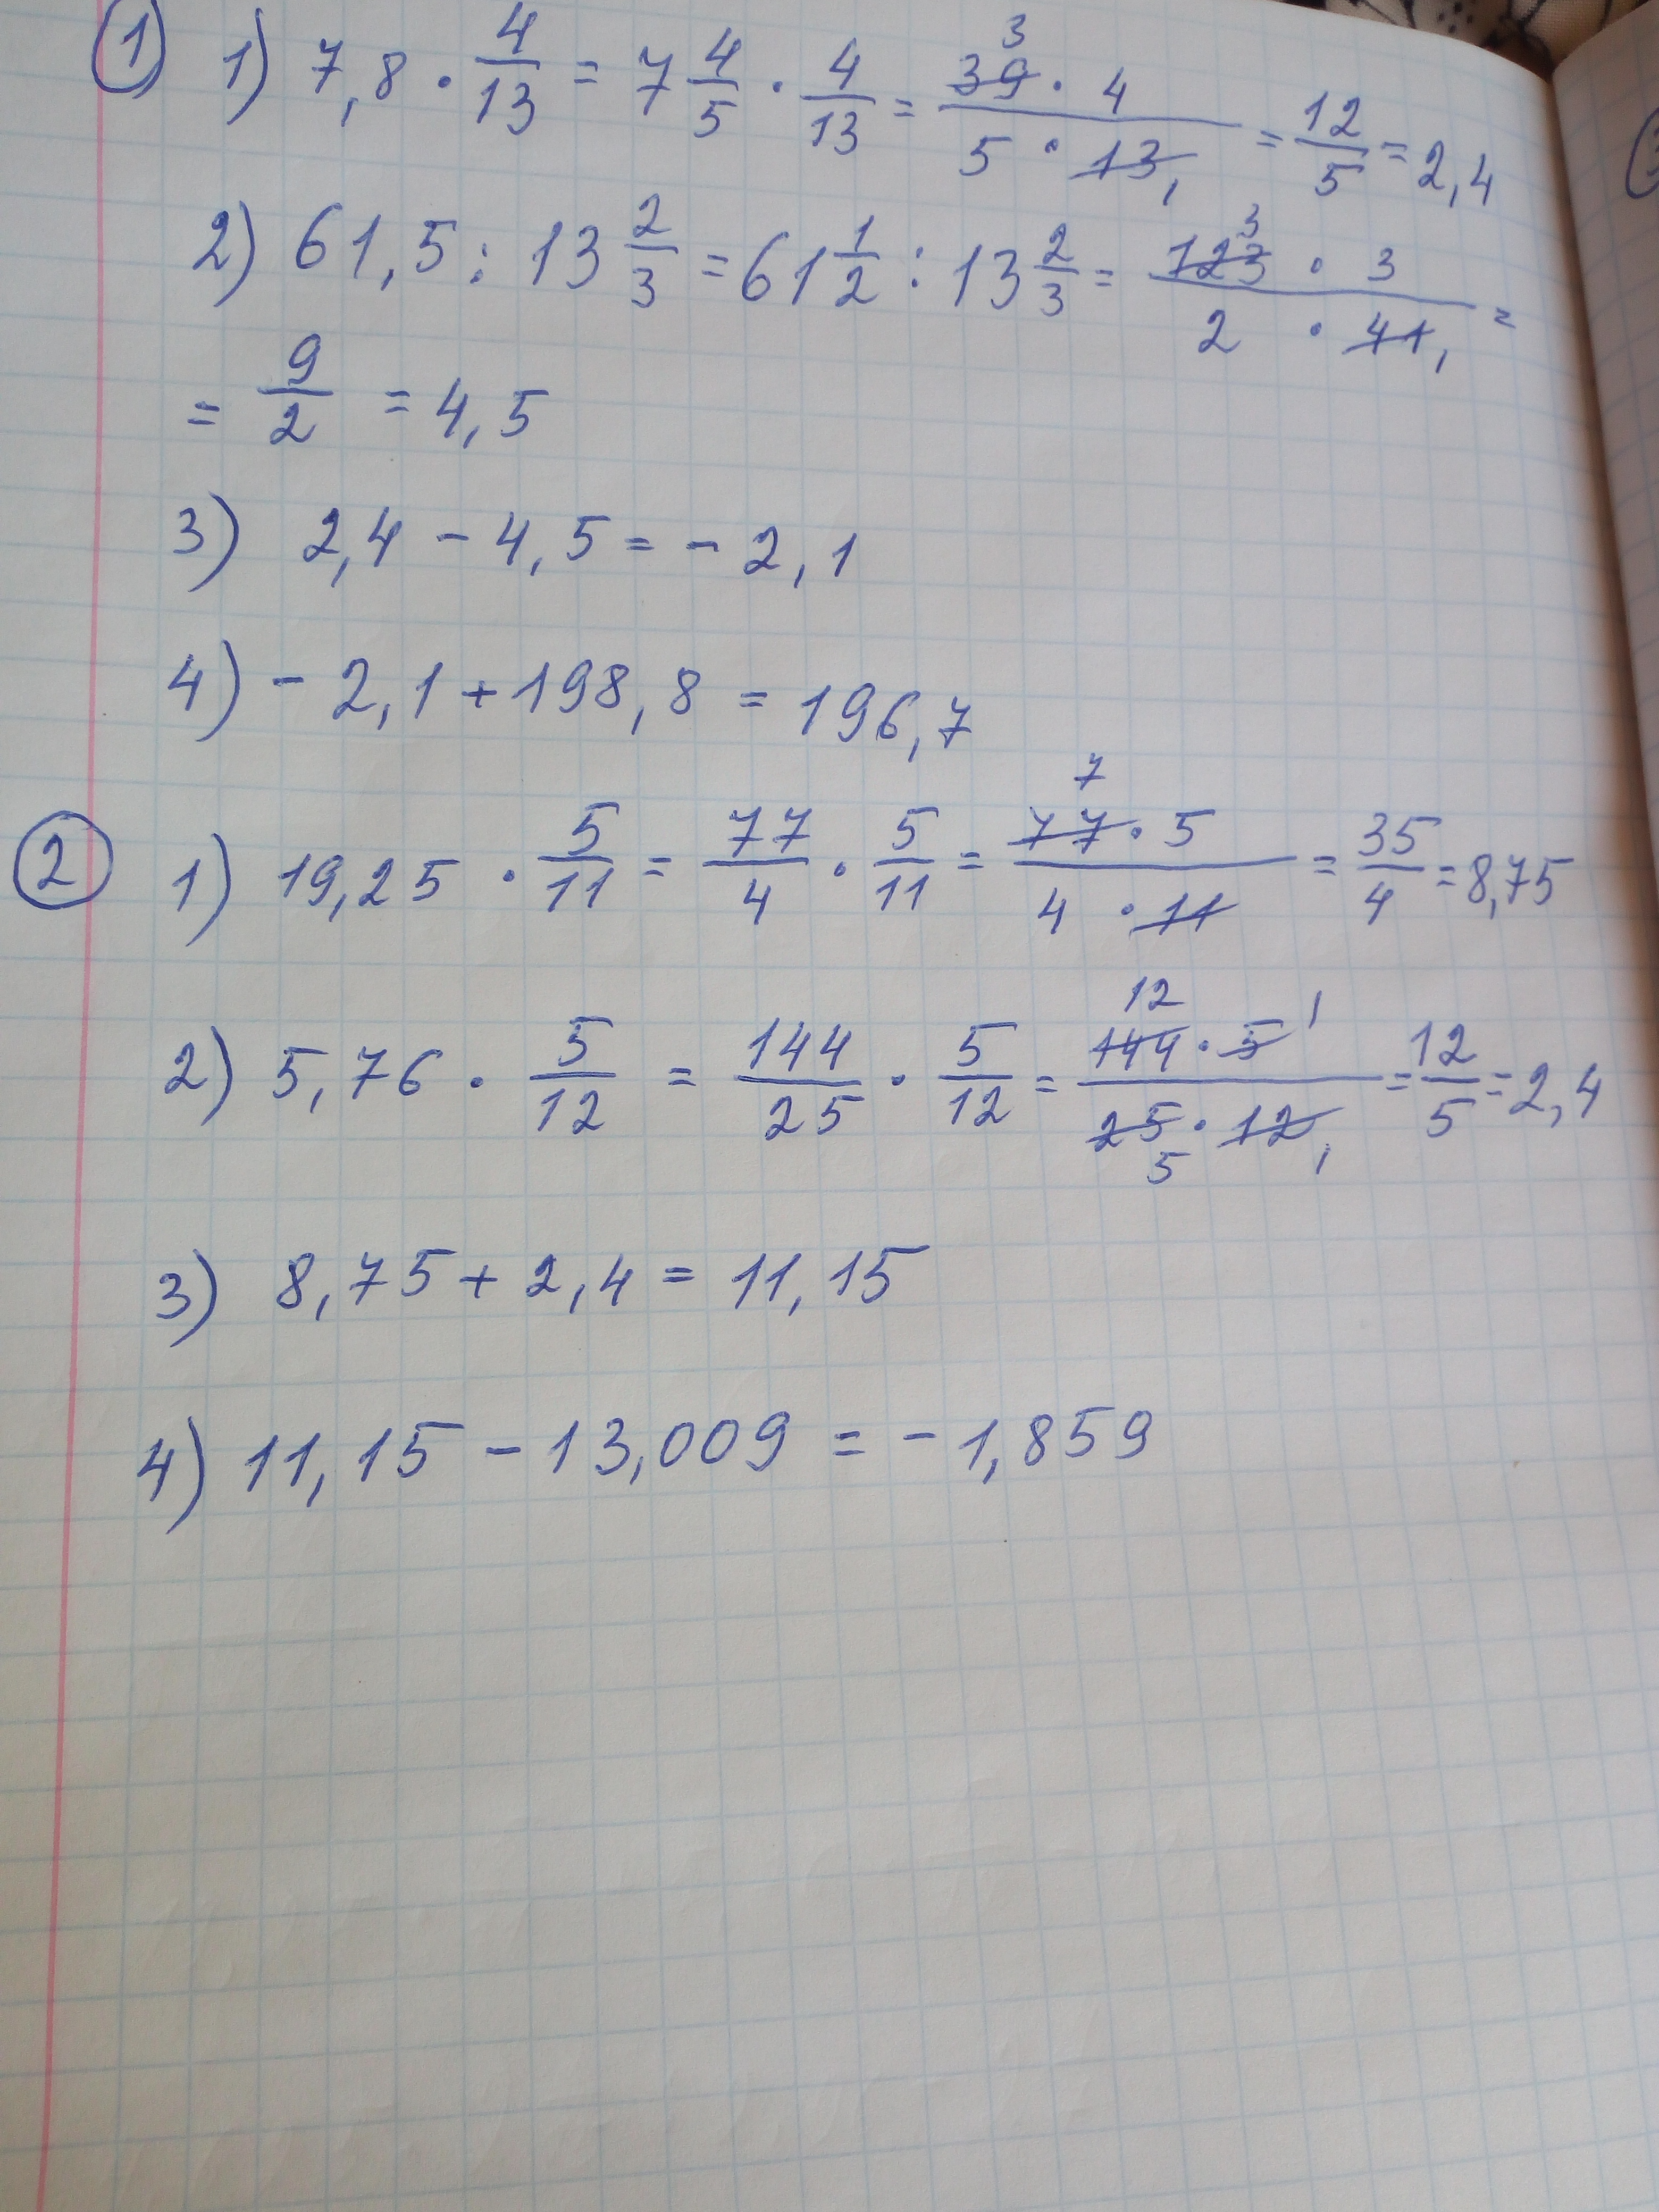 ① 1) 7,8 · 4/13 = 7 4/5 · 4/13 = (39 3 · 4)/(5 · 13 1) = 12/5 = 2,4
2) 61,5 : 13 2/3 = 61 1/2 : 13 2/3 = (123 3 · 3)/(2 · 41 1) =
= 9/2 = 4,5
3) 2,4 - 4,5 = - 2,1
4) - 2,1 + 198,8 = 196,7
② 1) 19,25 · 5/11 = 77/4 · 5/11 = (77 7 · 5)/(4 · 11) = 35/4 = 8,75
2) 5,76 · 5/12 = 144/25 · 5/12 = (144 12 · 5 1)/(25 5 · 12 1) = 12/5 = 2,4
3) 8,75 + 2,4 = 11,15
4) 11,15 - 13,009 = - 1,859